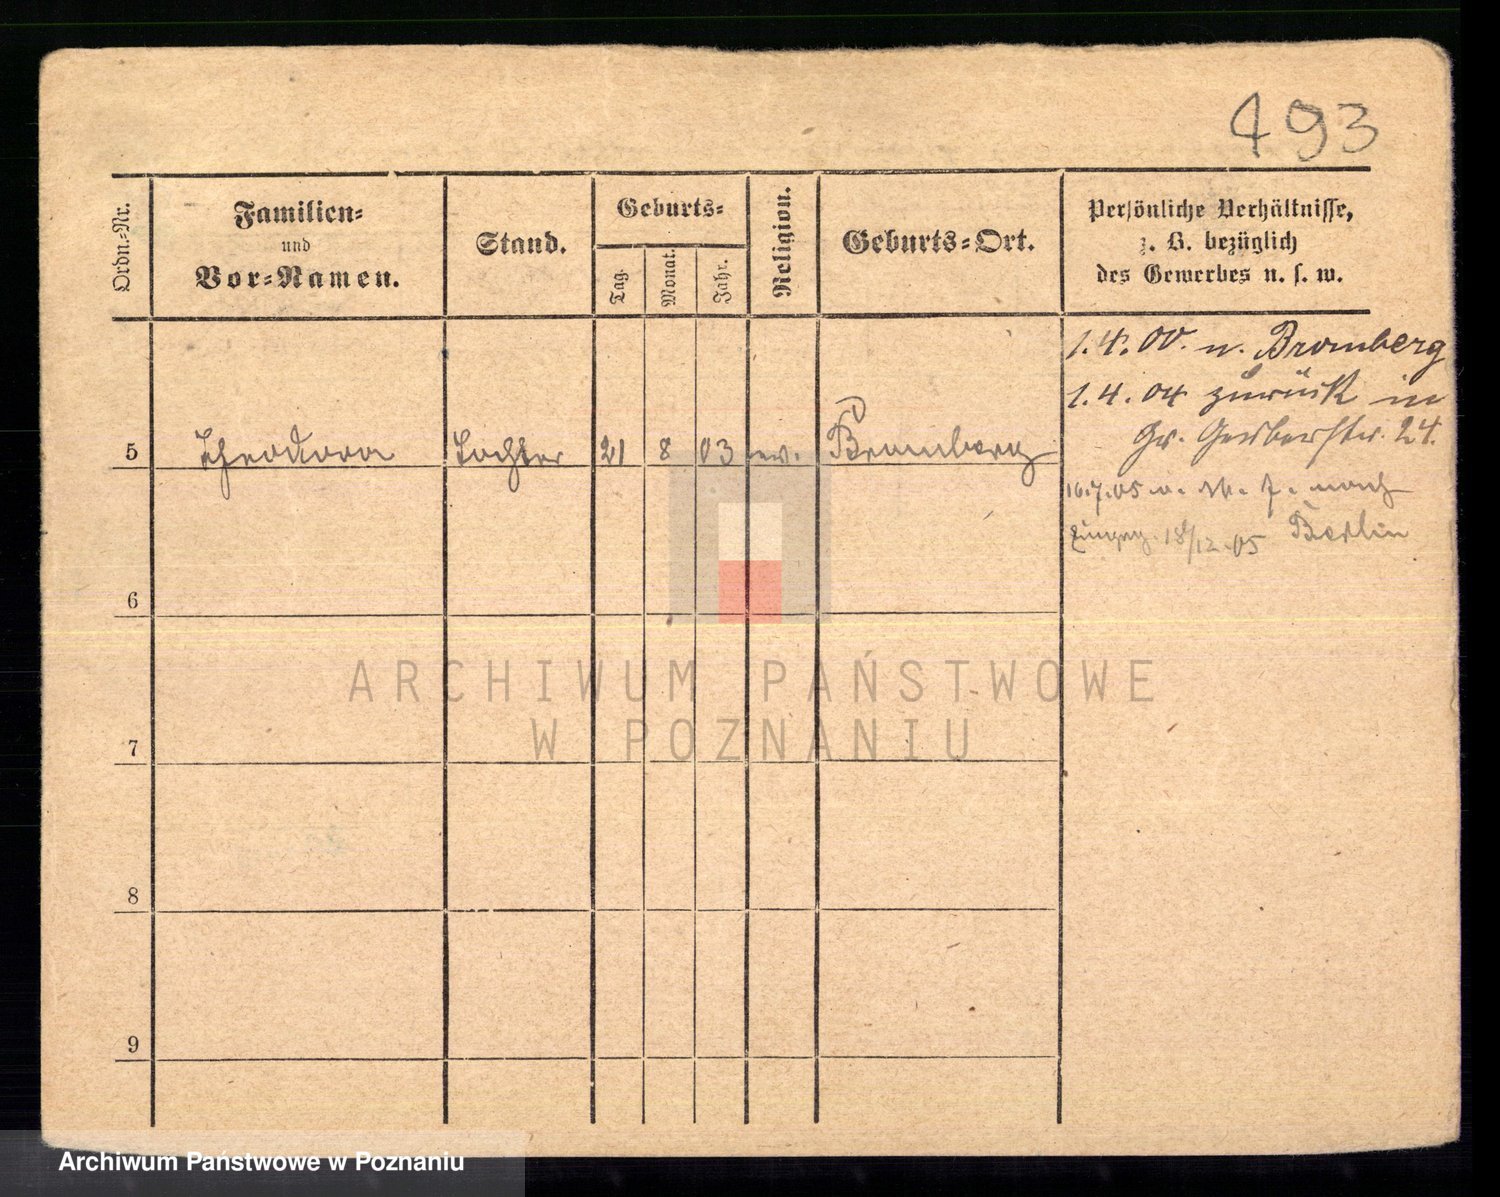 493
Ordn.-Nr.
Familien-
und
Vor-Namen.
Stand.
Geburts-
Tag.
Monat.
Jahr.
Religion.
Geburts-Ort.
Persönliche Verhältnisse,
z. B. bezüglich
des Gewerbes u. s. w.
1.4.00. n. Bromberg
1.4.04 zurück in
Gr. Gerberstr. 24.
5 Theodora Tochter 21 8 03 ev. Bromberg
16.7.05 nach
18/12.05 Berlin
6
7
8
9
ARCHIWUM PAŃSTWOWE
W POZNANIU
Archiwum Państwowe w Poznaniu